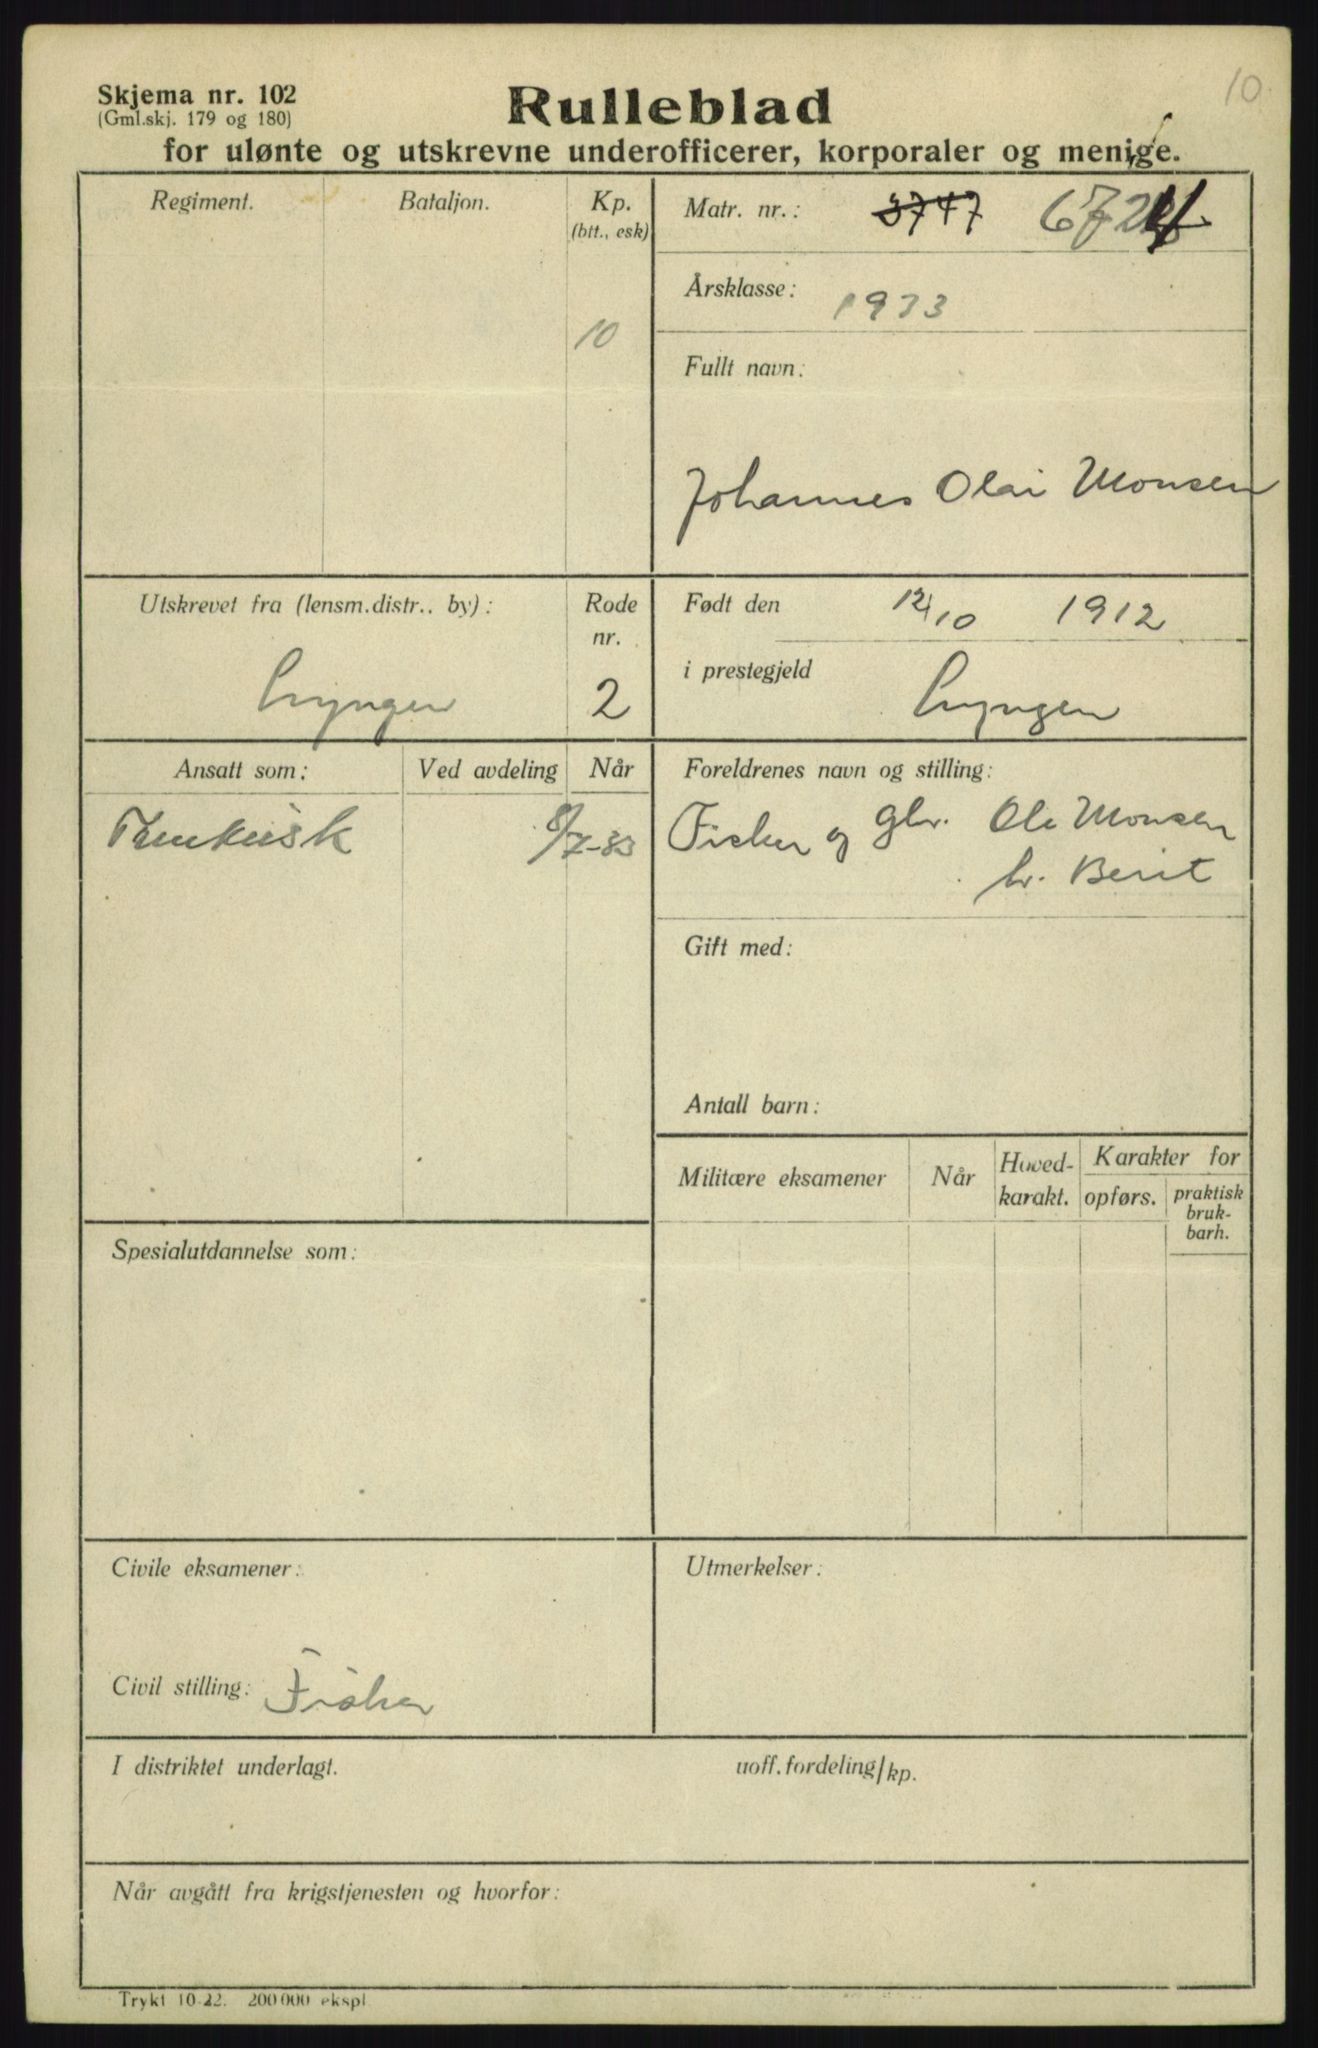 10
Skjema nr. 102
(Gml.skj. 179 og 180)
Rulleblad
for ulønte og utskrevne underofficerer, korporaler og menige.
Regiment.
Bataljon.
Kp.
(btt., esk)
10
Matr. nr.: 3747
Årsklasse: 1933
Fullt navn:
Johannes Olai Monsen
Utskrevet fra (lensm.distr.. by):
Lyngen
Rode
nr.
2
Født den 12/10 1912
i prestegjeld Lyngen
Ansatt som:
Ved avdeling
Når
8/7-33
Foreldrenes navn og stilling:
Fisker og gbr. Ole Monsen
h. Berit
Gift med:
Antall barn:
Militære eksamener
Når
Hoved-
karakt.
Karakter for
opførs.
praktisk
bruk-
barh.
Spesialutdannelse som:
Civile eksamener:
Civil stilling: Fisker
Utmerkelser:
I distriktet underlagt.
uoff. fordeling/kp.
Når avgått fra krigstjenesten og hvorfor:
Trykt 10-22. 200 000 ekspl.